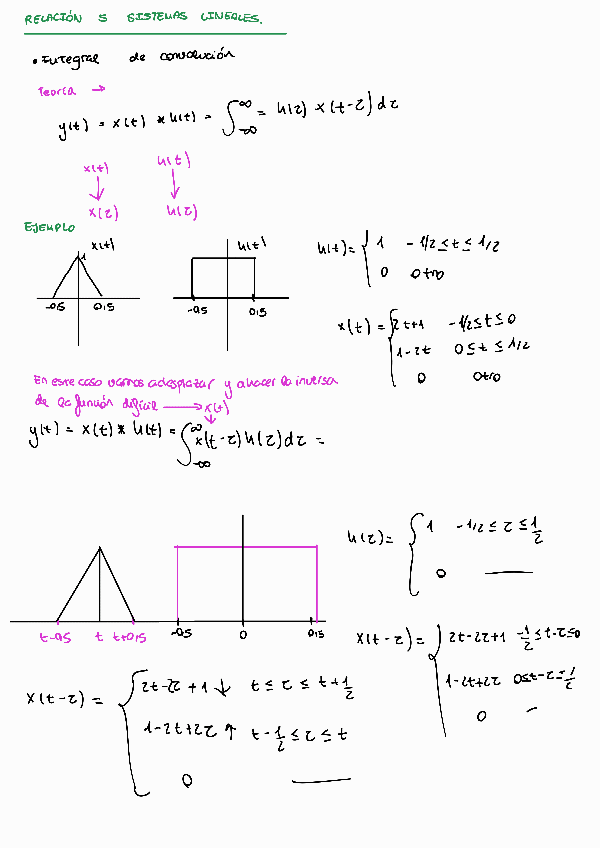 RELACIÓN 5 SISTEMAS LINEALES.
• Integral de convolución
Teoría →
y(t) = x(t) * h(t) = ∫_{-∞}^{∞} = h(τ) x(t-τ) dτ
x(t) h(t)
↓ ↓
x(τ) h(τ)
EJEMPLO
x(t)
1
-0.5 0,5
h(t)
-0.5 0,5
h(t) = { 1 -1/2 ≤ t ≤ 1/2
0 otro
x(t) = { 2t+1 -1/2 ≤ t ≤ 0
1-2t 0 ≤ t ≤ 1/2
0 otro
En este caso vamos a desplazar y a hacer la inversa
de la función difícil → x(t)
y(t) = x(t) * h(t) = ∫_{-∞}^{∞} x(t-τ) h(τ) dτ =
t-0.5 t t+0,5 -0.5 0 0,5
h(τ) = { 1 -1/2 ≤ τ ≤ 1/2
0 —
x(t-τ) = { 2t-2τ+1 -1/2 ≤ t-τ ≤ 0
1-2t+2τ 0 ≤ t-τ ≤ 1/2
0 —
x(t-τ) = { 2t-2τ+1 ↓ t ≤ τ ≤ t+1/2
1-2t+2τ ↑ t-1/2 ≤ τ ≤ t
0 —